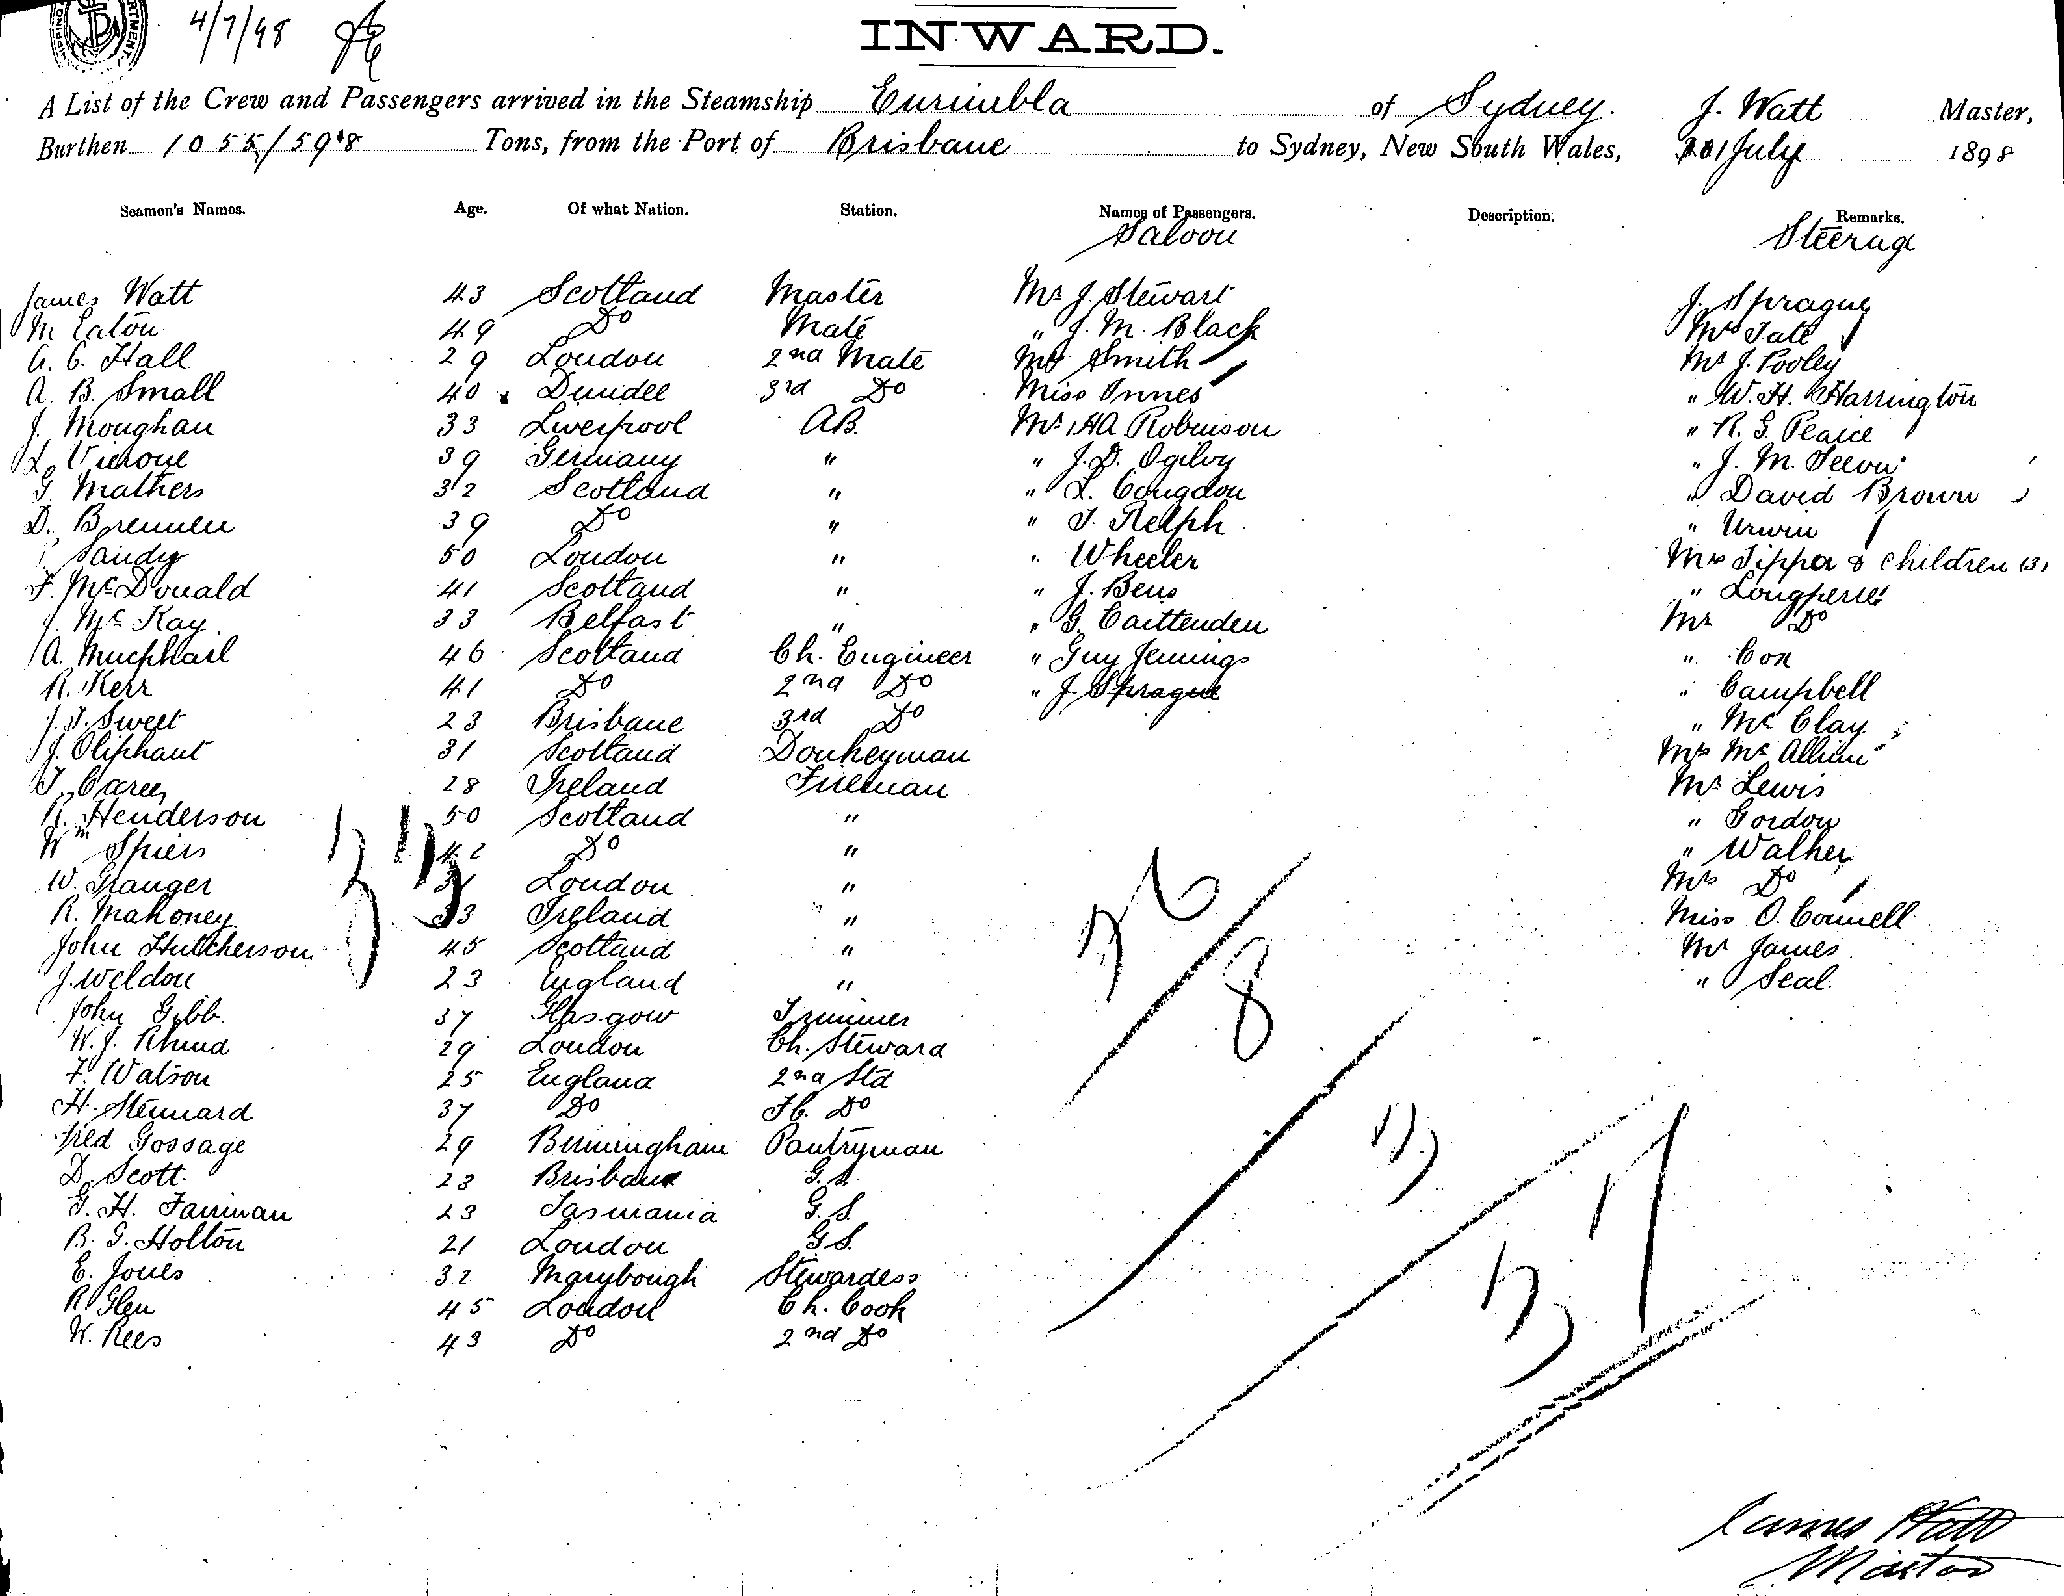 4/7/98
INWARD.
A List of the Crew and Passengers arrived in the Steamship Eurimbla of Sydney. J. Watt Master,
Burthen 1055/598 Tons, from the Port of Brisbane to Sydney, New South Wales, July 1898
Seamen's Names. Age. Of what Nation. Station. Names of Passengers. Description. Remarks.
Saloon Steerage
James Watt 43 Scotland Master Mr J. Stewart J. Sprague
M Eaton 49 Do Mate " J. M. Black Mrs Tate
A. C. Hall 29 London 2nd Mate Mrs Smith Mr J. Pooley
A. B. Small 40 Dundee 3rd Do Miss Innes " W. H. Harrington
J. Moughan 33 Liverpool AB. Mr HA Robinson " R. G. Pearce
L. 39 Germany " " J. D. Ogilvy " J. M.
G. Mathers 32 Scotland " " L. Congdon " David Brown
D. Brennen 39 Do " " T. Relph " Urwin
Sandy 50 London " " Wheeler Mrs Tipper & children (3)
F. McDonald 41 Scotland " " J. Bens "
J. McKay 33 Belfast " " G. Caittenden Mr Do
A. Mucphail 46 Scotland Ch. Engineer " Guy Jennings " Cox
R. Kerr 41 Do 2nd Do " J Sprague " Campbell
J. T. Sweet 23 Brisbane 3rd Do " Mc Clay
J. Oliphant 31 Scotland Donkeyman Mrs Mc
T. Carey 28 Ireland Fireman Mr Lewis
R. Henderson 50 Scotland " " Gordon
Wm Spiers 42 Do " " Walker
W. Granger London " Mrs Do
R. Mahoney 33 Ireland " Miss O. Connell
John Hutcherson 45 Scotland " Mr James
J. Weldon 23 England " " Seal
John Gibb. 37 Glasgow Trimmer
W. J. Rhind 29 London Ch. Steward
F. Watson 25 England 2nd Std
H. Stennard 37 Do Do
Fred Gossage 29 Birmingham Pantryman
D. Scott. 23 Brisbane G.S.
G. H. Fairman 23 Tasmania G.S.
B. G. Holton 21 London G.S.
E. Jones 32 Marybough Stewardess
R Glen 45 London Ch. Cook
W. Rees 43 Do 2nd Do
James Watt
Master